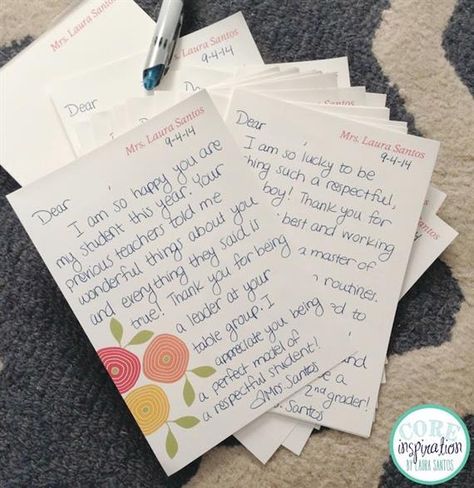 Mrs. Laura Santos
9-4-14
Dear
Mrs. Laura Santos
9-4-14
Dear
I am so happy you are
my student this year. Your
previous teachers told me
wonderful things about you
and everything they said is
true! Thank you for being
a leader at your
table group. I
appreciate you being
a perfect model of
a respectful student!
Mrs. Santos
Mrs. Laura Santos
9-4-14
Dear
I am so lucky to be
such a respectful,
boy! Thank you for
best and working
a master of
routines.
to
and
a
2nd grader!
Santos
Mrs. Laura Santos
CORE
inspiration
BY LAURA SANTOS